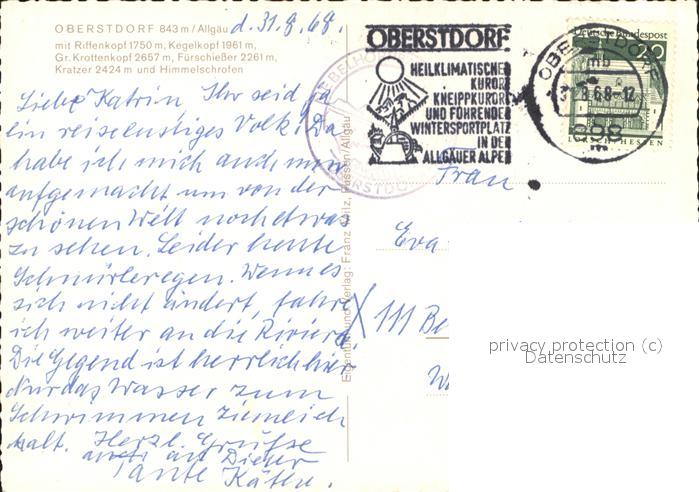 OBERSTDORF 843 m / Allgäu
mit Riffenkopf 1750 m, Kegelkopf 1961 m,
Gr. Krottenkopf 2657 m, Fürschießer 2261 m,
Kratzer 2424 m und Himmelschrofen
d. 31.8.68.
Liebe Katrin, Ihr seid ja
ein reiselustiges Volk! Da
habe ich mich auch nun
aufgemacht um von der
schönen Welt noch etwas
zu sehen. Leider heute
Schnürlregen. Wenn es
sich nicht ändert, fahre
ich weiter an die Riviera.
Die Gegend ist herrlich hier
Nur das Wasser zum
Schwimmen ziemlich
kalt. Herzl. Grüsse
auch an Dieter
Tante Käthe.
Verlag: Franz Milz, Füssen/Allgäu
NEBELHO
OBERSTDORF
OBERSTDORF
HEILKLIMATISCHER
KURORT
KNEIPPKURORT
UND FÜHRENDER
WINTERSPORTPLATZ
IN DEN
ALLGÄUER ALPEN
OBERSTDORF
mb
8.68-12
898
Deutsche Bundespost
20
LORSCH/HESSEN
Frau
Eva
111 Be
privacy protection (c)
Datenschutz